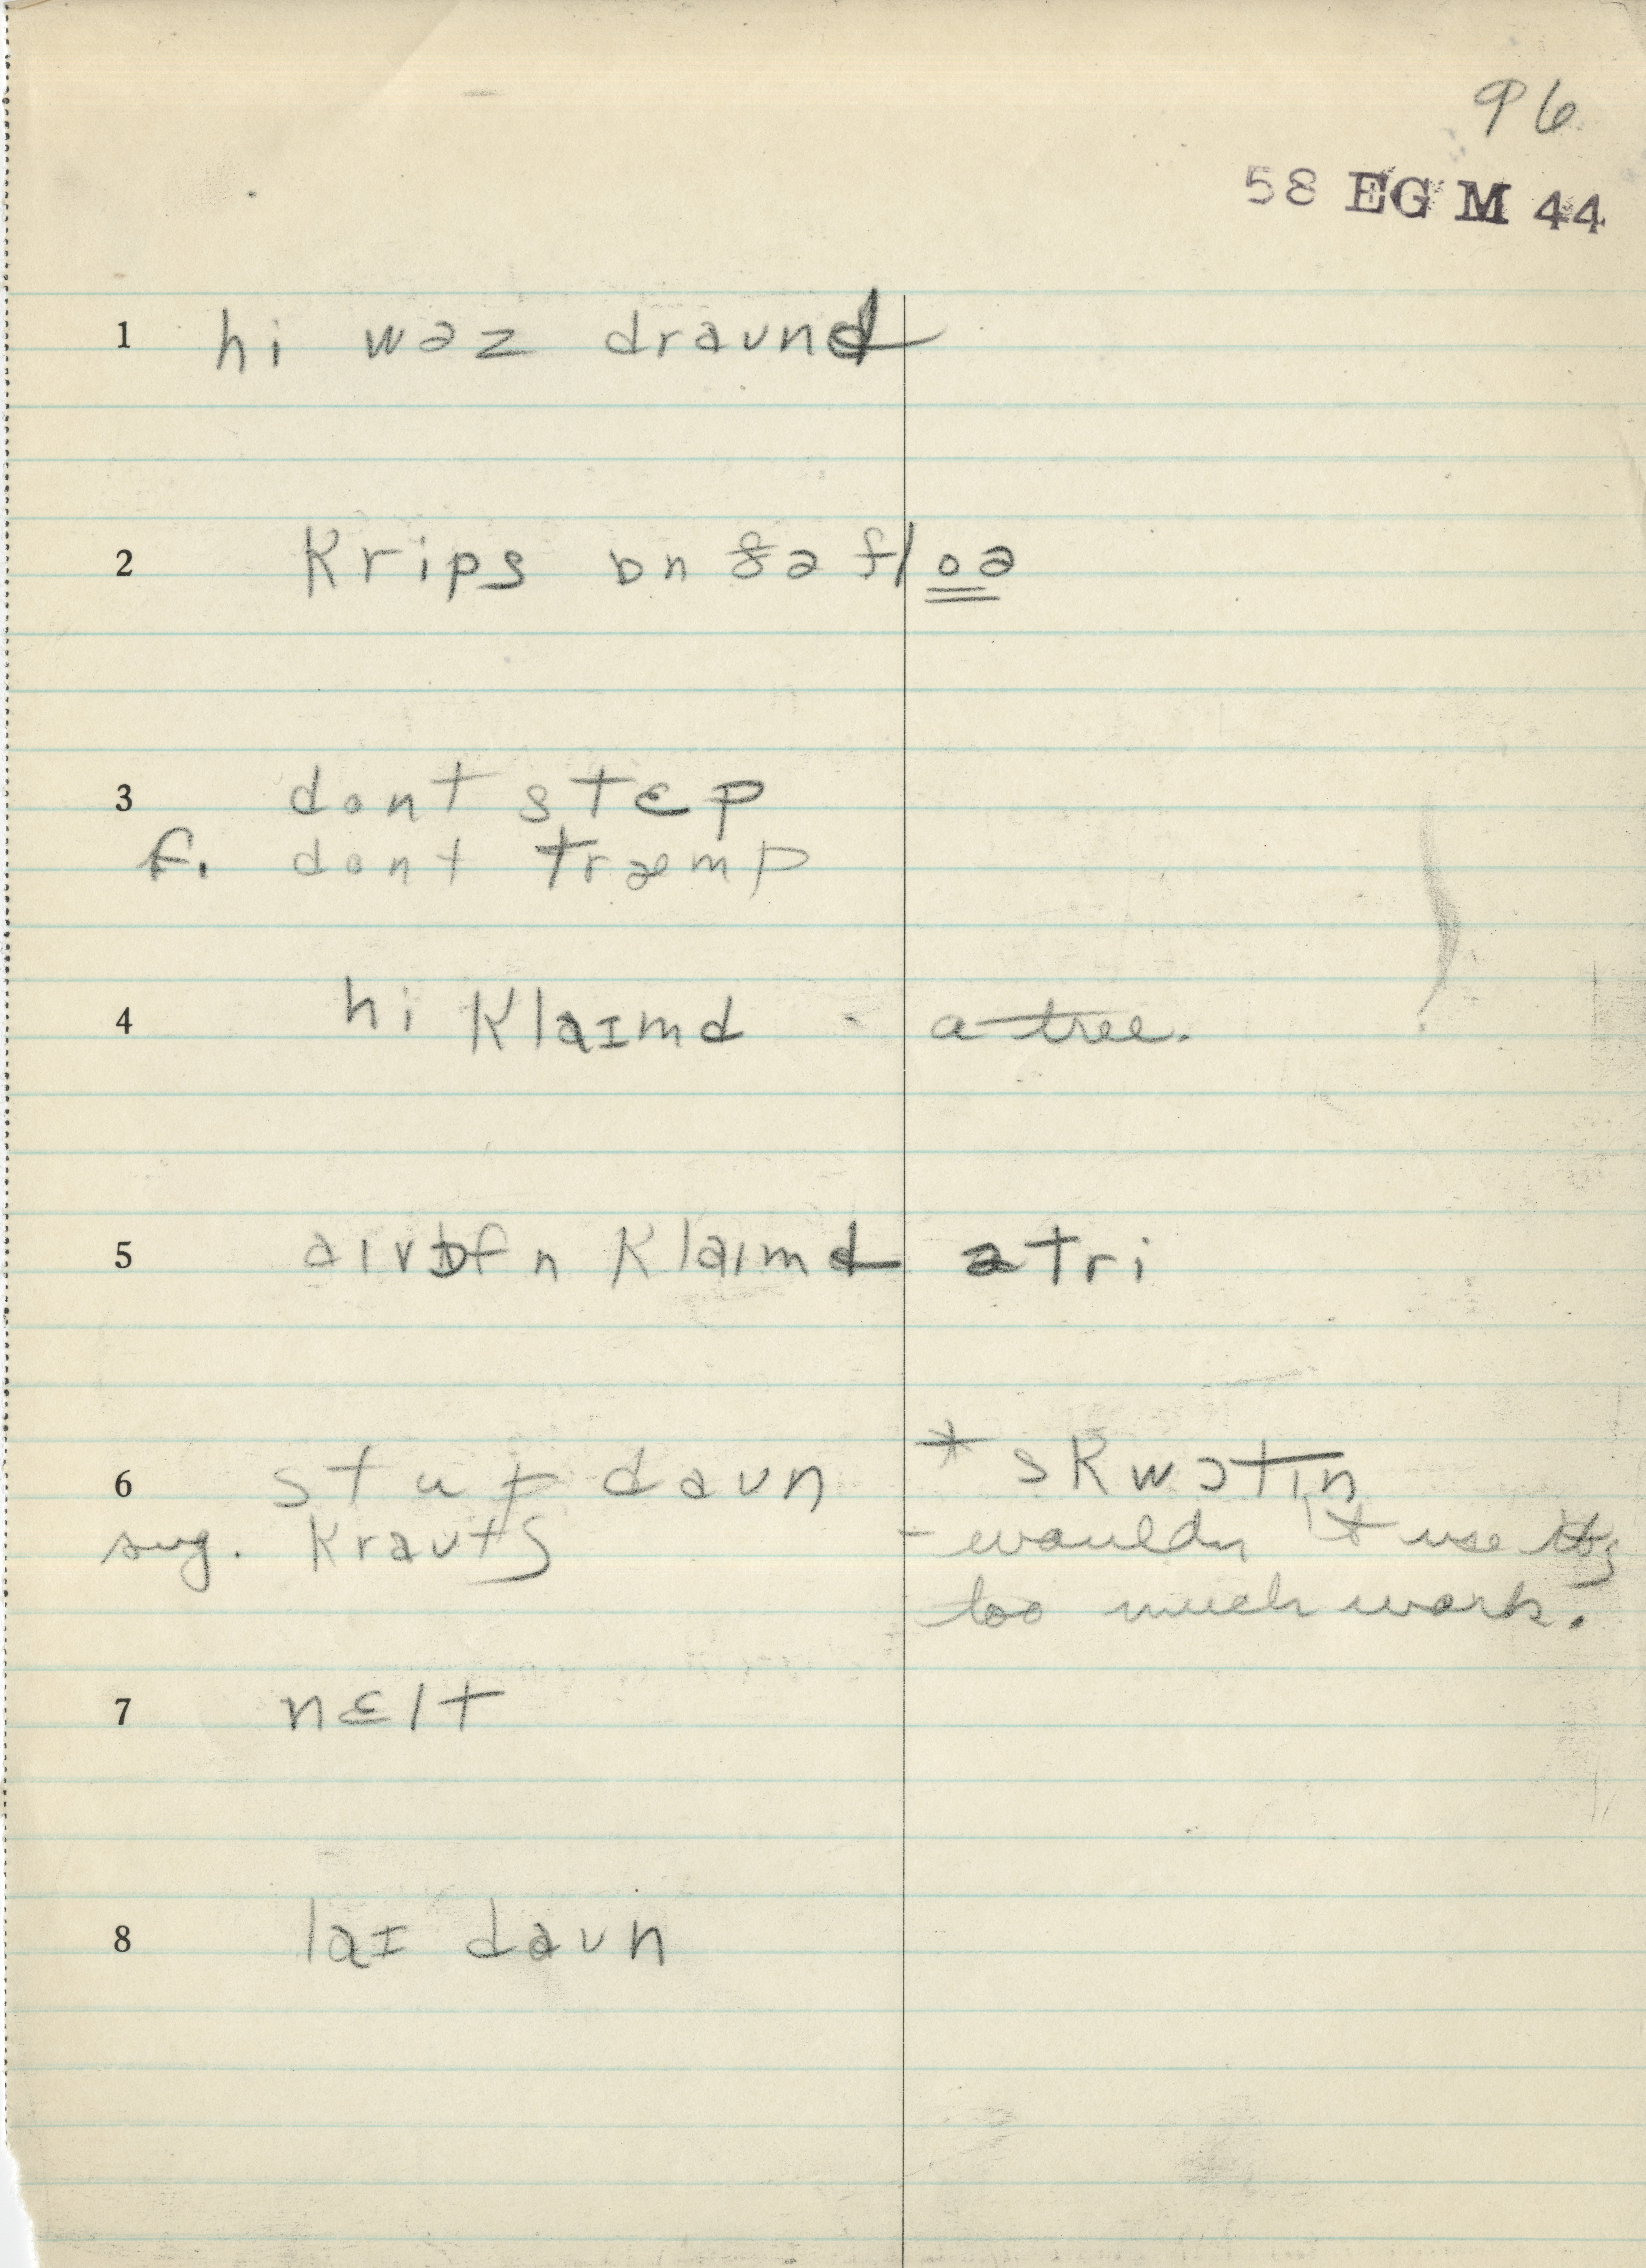 96
58 EG M 44
1 hi wəz draʊnd
2 krips ɒn ðə floə
3 dont stɛp
f. dont træmp
4 hi klaɪmd - a tree.
5 aɪv ɒfn klaɪmd ə tri
6 stup daʊn * skwɔtɪn
sug. kraʊtʃ - wouldn't use it,
too much work.
7 nɛlt
8 laɪ daʊn